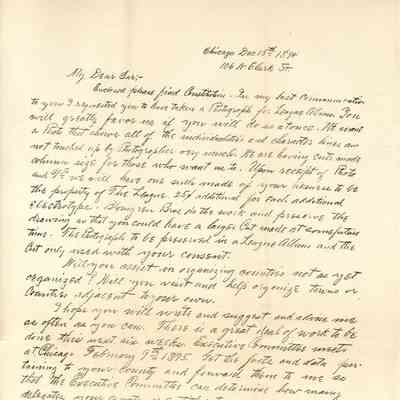 Chicago Dec 15th, 1894
106 N. Clark St.
My Dear Sir;-
Enclosed please find Constitution. In my last Communication
to you I requested you to have taken a Photograph for League Album. You
will greatly favor me if you will do so at once. We want
a Photo that shows all of the individualities and character lines and
not touched up by Photographer very much. We are having cuts made
column size for those who want me to. Upon receipt of Photo
and we will have one such made of your likeness to be
the property of The League. 25¢ additional for each additional
Electrotype. Bros do the work and preserve the
drawing so that you could have a larger Cut made at some future
time. The Photograph to be preserved in a League Album and the
Cut only used with your consent.
Will you assist in organizing counties not as yet
organized? Will you visit and help organize towns or
Counties adjacent to your own.
I hope you will write and suggest and advise me
as often as you can. There is a great deal of work to be
done this next six weeks. Executive Committee meets
at Chicago February 9th 1895. Get the facts and data per-
taining to your County and forward them to me so
that the Executive Committee can determine how many
delegates your county